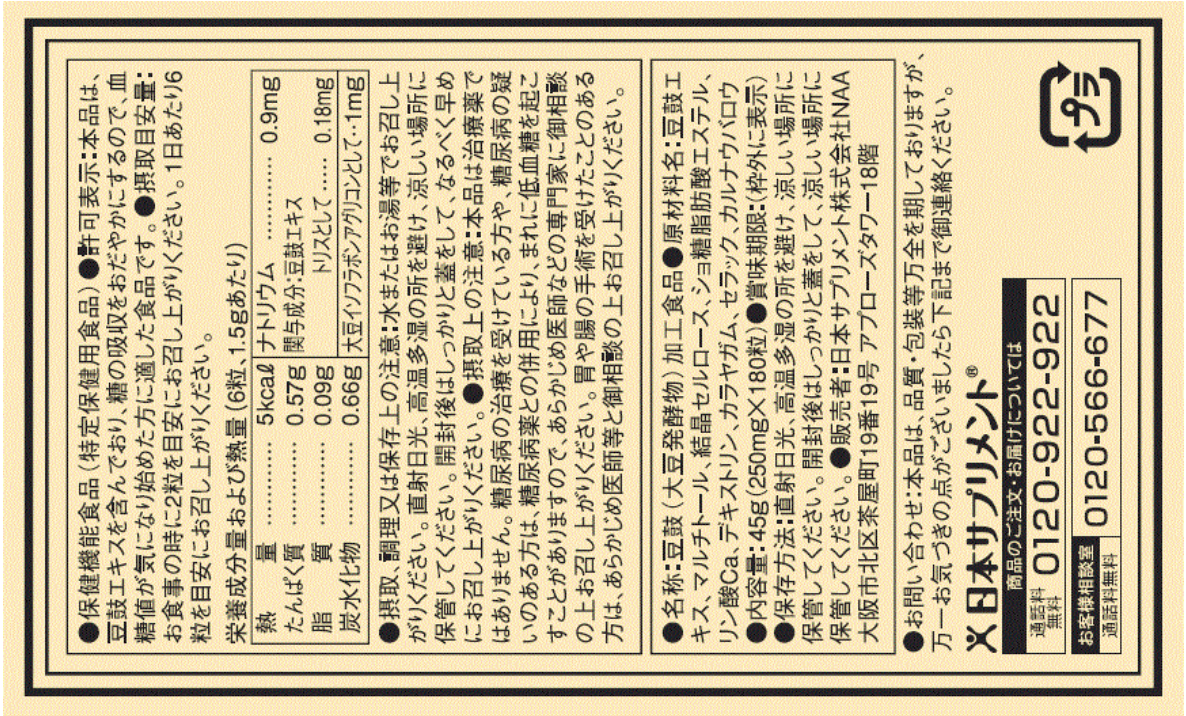 ●保健機能食品(特定保健用食品)●許可表示:本品は、
豆鼓エキスを含んでおり、糖の吸収をおだやかにするので、血
糖値が気になり始めた方に適した食品です。●摂取目安量:
お食事の時に2粒を目安にお召し上がりください。1日あたり6
粒を目安にお召し上がりください。
栄養成分量および熱量(6粒、1.5gあたり)
熱量………… 5kcal
たんぱく質………… 0.57g
脂質………… 0.09g
炭水化物………… 0.66g
ナトリウム………… 0.9mg
関与成分:豆鼓エキス
トリスとして…… 0.18mg
大豆イソフラボンアグリコンとして‥1mg
●摂取、調理又は保存上の注意:水またはお湯等でお召し上
がりください。直射日光、高温多湿の所を避け、涼しい場所に
保管してください。開封後はしっかりと蓋をして、なるべく早め
にお召し上がりください。●摂取上の注意:本品は治療薬で
はありません。糖尿病の治療を受けている方や、糖尿病の疑
いのある方は、糖尿病薬との併用により、まれに低血糖を起こ
すことがありますので、あらかじめ医師などの専門家に御相談
の上お召し上がりください。胃や腸の手術を受けたことのある
方は、あらかじめ医師等と御相談の上お召し上がりください。
●名称:豆鼓(大豆発酵物)加工食品●原材料名:豆鼓エ
キス、マルチトール、結晶セルロース、ショ糖脂肪酸エステル、
リン酸Ca、デキストリン、カラヤガム、セラック、カルナウバロウ
●内容量:45g(250mg×180粒)●賞味期限:(枠外に表示)
●保存方法:直射日光、高温多湿の所を避け、涼しい場所に
保管してください。開封後はしっかりと蓋をして、涼しい場所に
保管してください。●販売者:日本サプリメント株式会社NAA
大阪市北区茶屋町19番19号 アプローズタワー18階
●お問い合わせ:本品は、品質・包装等万全を期しておりますが、
万一お気づきの点がございましたら下記まで御連絡ください。
日本サプリメント®
商品のご注文・お届けについては
通話料無料 0120-922-922
お客様相談室
通話料無料 0120-566-677
プラ